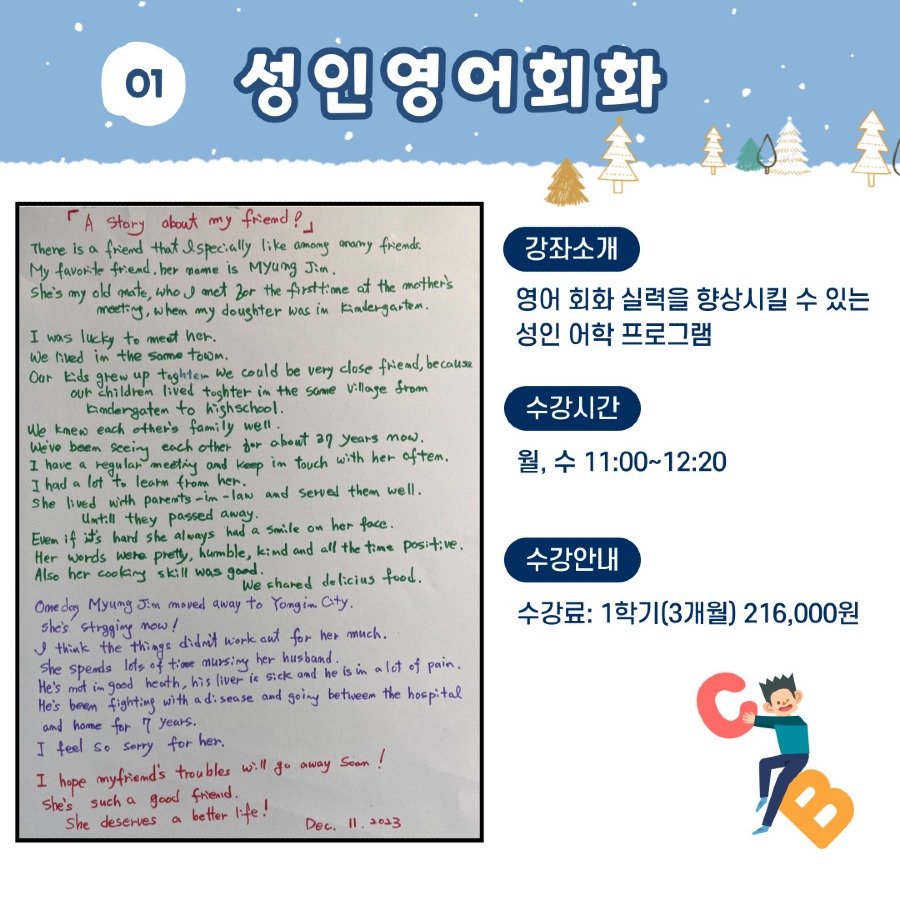 01 성인영어회화
「A story about my friend?」
There is a friend that I specially like among many friends.
My favorite friend, her name is Myung Jin.
She's my old mate, who I met for the first time at the mother's
meeting, when my daughter was in kindergarten.
I was lucky to meet her.
We lived in the same town.
Our kids grew up toghter We could be very close friend, because
our children lived toghter in the same village from
kindergaten to highschool.
We knew each other's family well.
We've been seeing each other for about 27 years now.
I have a regular meeting and keep in touch with her often.
I had a lot to learn from her.
She lived with parents-in-law and served them well.
Untill they passed away.
Even if it's hard she always had a smile on her face.
Her words were pretty, humble, kind and all the time positive.
Also her cooking skill was good.
We shared delicius food.
One day Myung Jin moved away to Yongin City.
She's strgging now!
I think the things didn't work out for her much.
She spends lots of time nursing her husband.
He's not in good heath, his liver is sick and he is in a lot of pain.
He's been fighting with a disease and going between the hospital
and home for 7 years.
I feel so sorry for her.
I hope my friend's troubles will go away soon!
She's such a good friend.
She deserves a better life!
Dec. 11. 2023
강좌소개
영어 회화 실력을 향상시킬 수 있는
성인 어학 프로그램
수강시간
월, 수 11:00~12:20
수강안내
수강료: 1학기(3개월) 216,000원
C
B